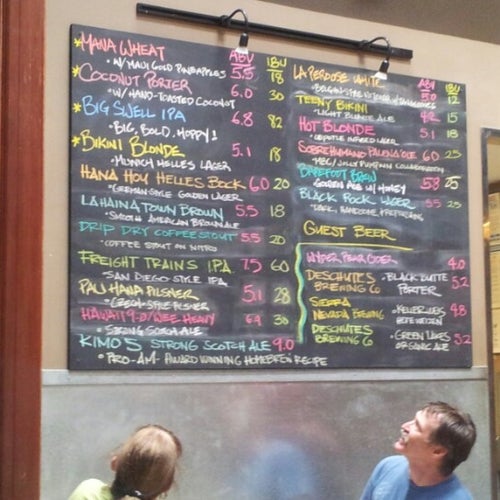 ABV IBU
*MANA WHEAT 5.5 18
• W/ MAUI GOLD PINEAPPLES
*COCONUT PORTER 6.0 30
• W/ HAND-TOASTED COCONUT
*BIG SWELL IPA 6.8 82
• BIG, BOLD, HOPPY!
*BIKINI BLONDE 5.1 18
• MUNICH HELLES LAGER
HANA HOU HELLES BOCK 6.0 20
• GERMAN-STYLE GOLDEN LAGER
LAHAINA TOWN BROWN 5.5 18
• SMOOTH AMERICAN BROWN ALE
DRIP DRY COFFEE STOUT 5.5 20
• COFFEE STOUT ON NITRO
FREIGHT TRAINS IPA 7.5 60
• SAN DIEGO-STYLE IPA
PAU HANA PILSNER 5.1 28
• CZECH-STYLE PILSNER
HAWAII WEE HEAVY 30
• STRONG SCOTCH ALE
KIMO'S STRONG SCOTCH ALE 9.0
• PRO-AM- AWARD WINNING HOMEBREW RECIPE
ABV IBU
LA PEROUSE WHITE 5.0 12
• BELGIAN-STYLE
TEENY BIKINI 15
• LIGHT BLONDE ALE
HOT BLONDE 5.1 18
• CHIPOTLE INFUSED LAGER
SOBREHUMANO PALENA'OLE 6.0 25
• MBC/JOLLY PUMPKIN COLLABORATION
BAREFOOT BREW 5.8 25
GOLDEN ALE W/ HONEY
BLACK ROCK LAGER 5.5 25
• DARK, HANDSOME, & REFRESHING
GUEST BEER
WYDER PEAR CIDER 4.0
DESCHUTES BREWING CO • BLACK BUTTE PORTER 5.2
SIERRA NEVADA BREWING • KELLERWEIS HEFEWEIZEN 4.8
DESCHUTES BREWING CO • GREEN LAKES ORGANIC ALE 5.2